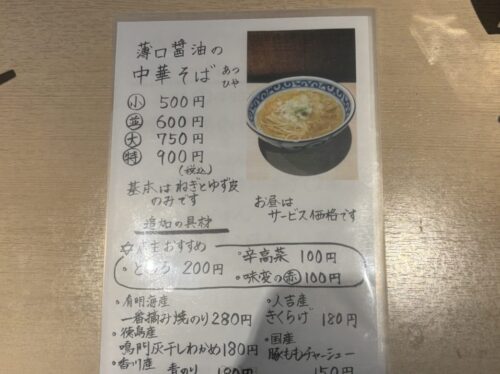 薄口醤油の
中華そば あつ
ひや
小 500円
並 600円
大 750円
特 900円
(税込)
基本はねぎとゆず皮
のみです
お昼は
サービス価格です
追加の具材
おすすめ
200円
・辛高菜 100円
・味変の赤 100円
・有明海産
一番摘み焼のり 280円
・徳島産
鳴門灰干しわかめ 180円
・香川産
青のり 180円
・人吉産
きくらげ 180円
・国産
豚ももチャーシュー
150円